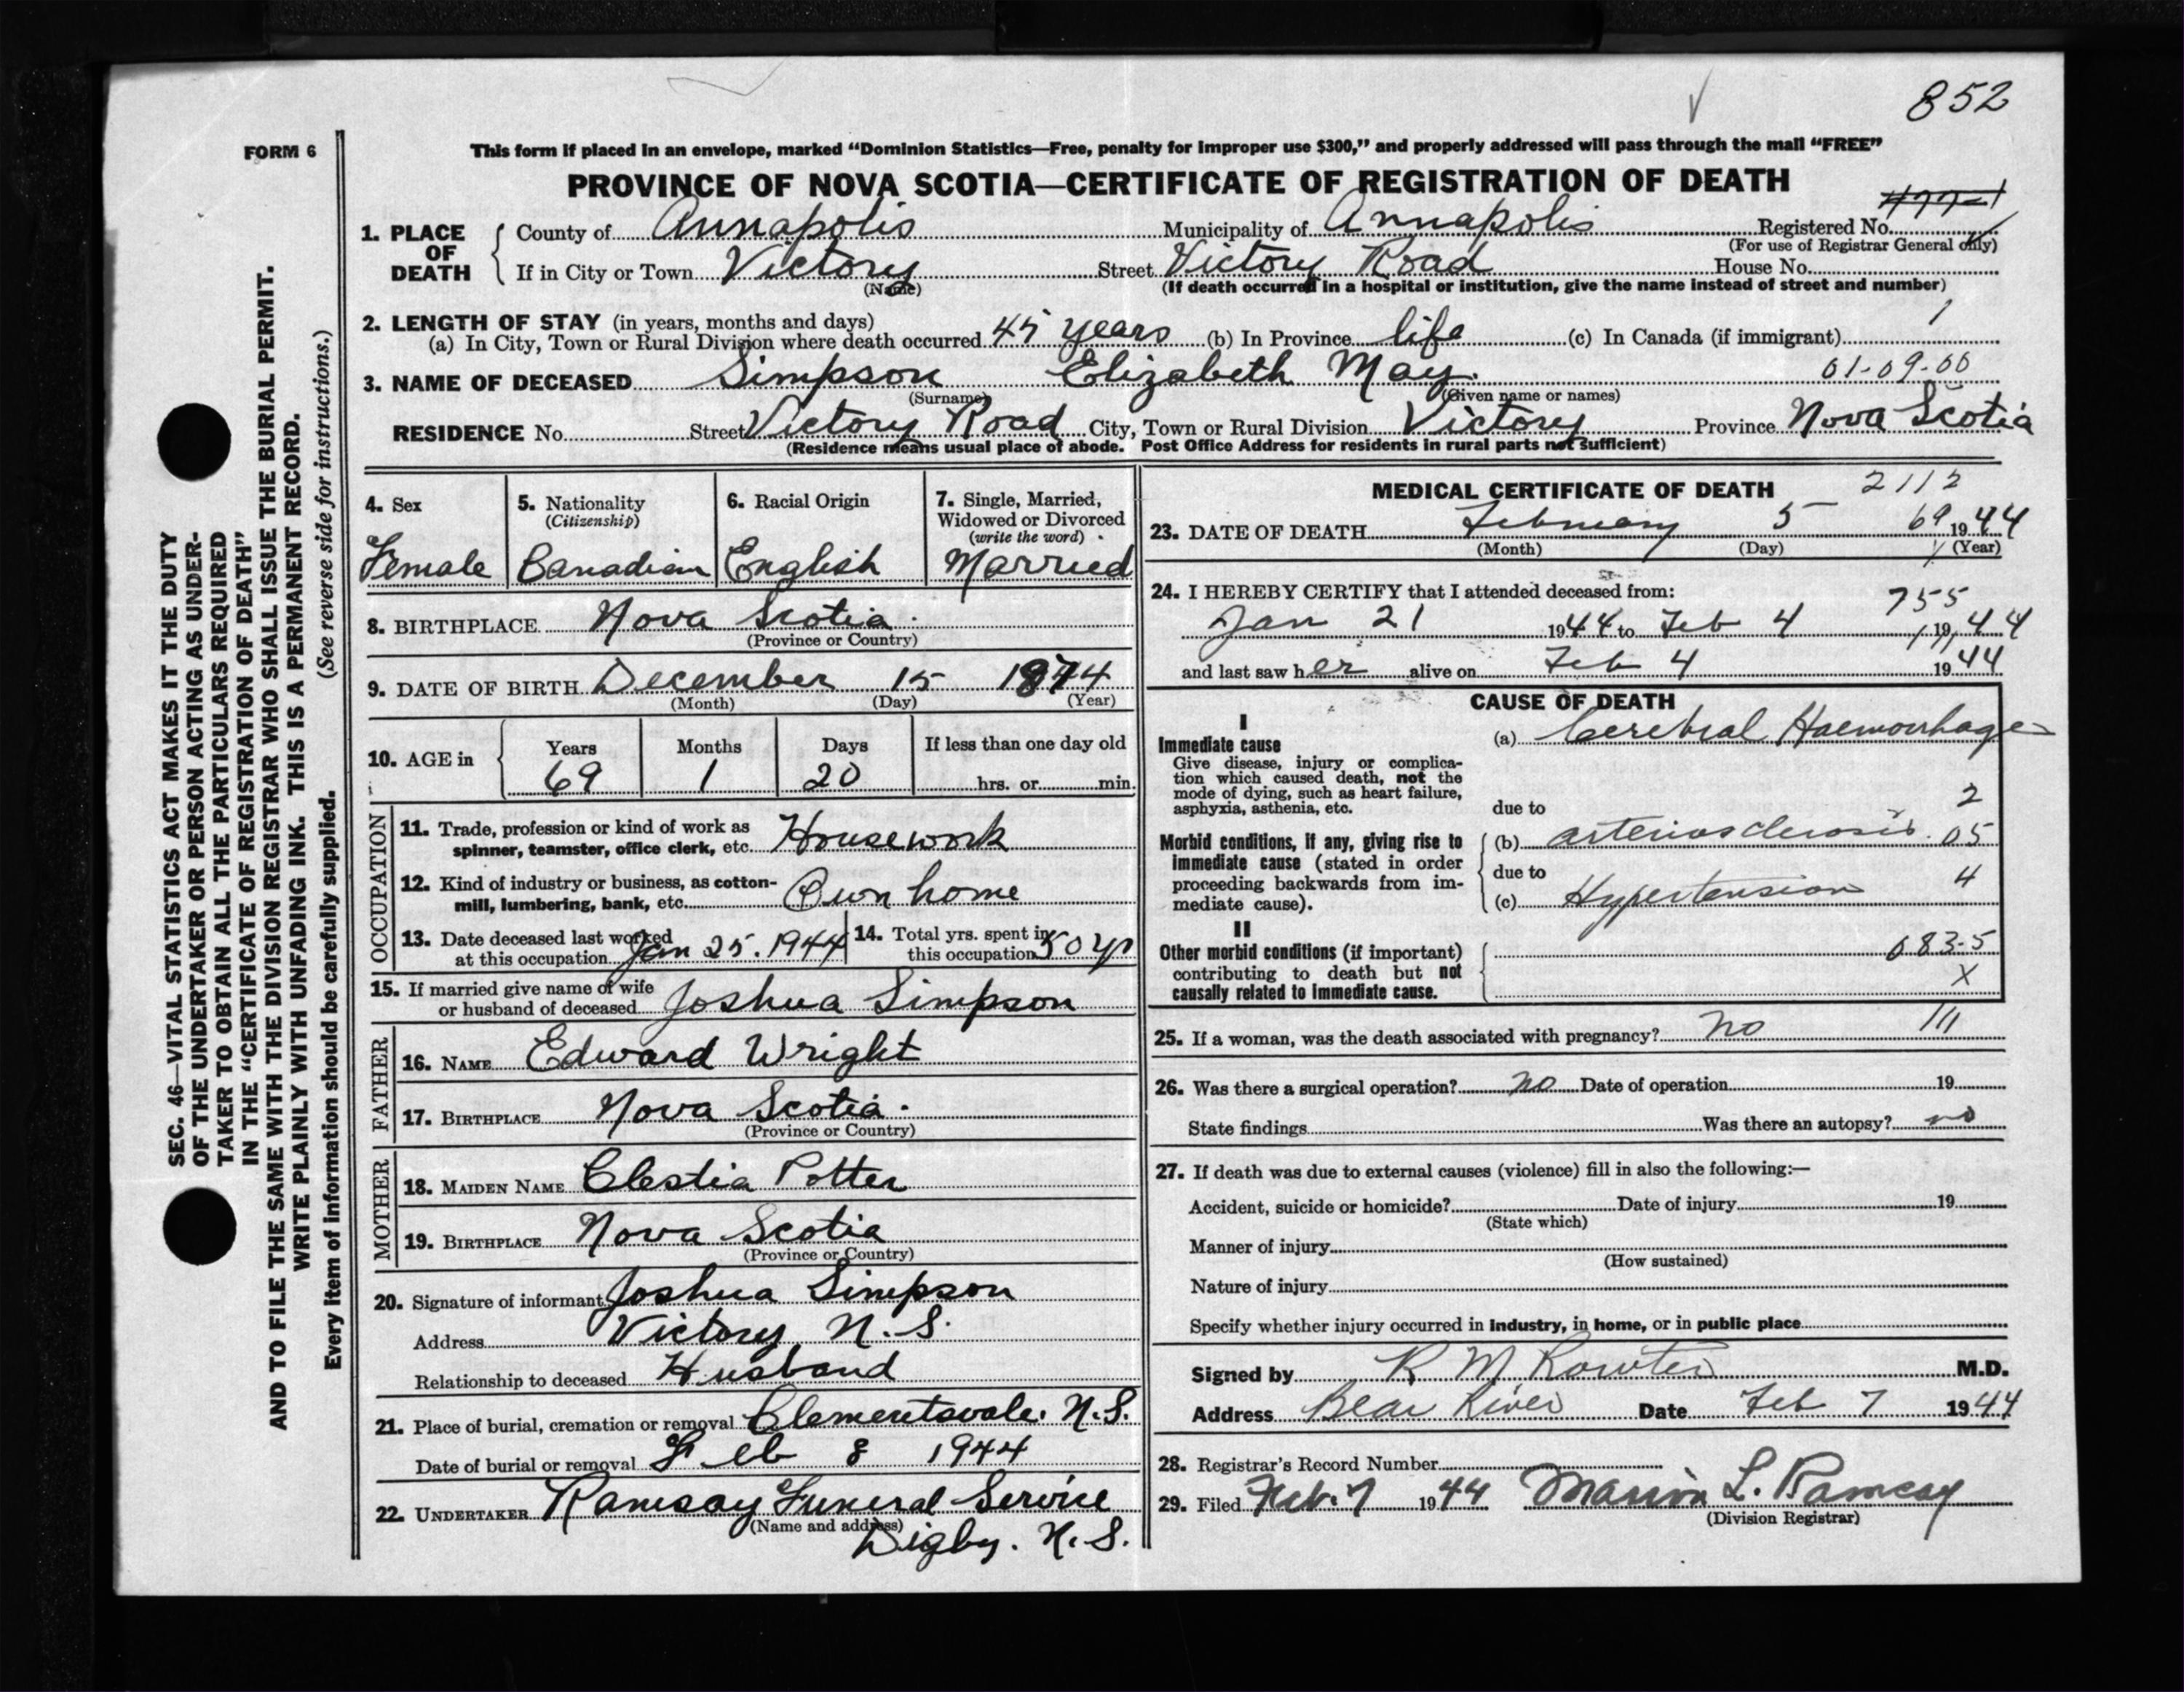 852
FORM 6
This form if placed in an envelope, marked “Dominion Statistics—Free, penalty for improper use $300,” and properly addressed will pass through the mail “FREE”
PROVINCE OF NOVA SCOTIA—CERTIFICATE OF REGISTRATION OF DEATH
1. PLACE OF DEATH
County of Annapolis Municipality of Annapolis Registered No.
(For use of Registrar General only)
If in City or Town Victory Street Victory Road House No.
(Name) (If death occurred in a hospital or institution, give the name instead of street and number)
2. LENGTH OF STAY (in years, months and days) 1
(a) In City, Town or Rural Division where death occurred 45 years (b) In Province life (c) In Canada (if immigrant)
3. NAME OF DECEASED Simpson Elizabeth May. 01-09-00
(Surname) (Given name or names)
RESIDENCE No. Street Victory Road City, Town or Rural Division Victory Province Nova Scotia
(Residence means usual place of abode. Post Office Address for residents in rural parts not sufficient)
4. Sex
Female
5. Nationality
(Citizenship)
Canadian
6. Racial Origin
English
7. Single, Married,
Widowed or Divorced
(write the word)
Married
8. BIRTHPLACE Nova Scotia.
(Province or Country)
9. DATE OF BIRTH December 15 1874
(Month) (Day) (Year)
10. AGE in
Years Months Days If less than one day old
69 1 20 hrs. or min.
OCCUPATION
11. Trade, profession or kind of work as
spinner, teamster, office clerk, etc. Housework
12. Kind of industry or business, as cotton-
mill, lumbering, bank, etc. Own home
13. Date deceased last worked
at this occupation Jan 25. 1944
14. Total yrs. spent in
this occupation 50 yr
15. If married give name of wife
or husband of deceased Joshua Simpson
FATHER
16. NAME Edward Wright
17. BIRTHPLACE Nova Scotia.
(Province or Country)
MOTHER
18. MAIDEN NAME Clestia Potter
19. BIRTHPLACE Nova Scotia
(Province or Country)
20. Signature of informant Joshua Simpson
Address Victory N.S.
Relationship to deceased Husband
21. Place of burial, cremation or removal Clementsvale. N.S.
Date of burial or removal Feb 8 1944
22. UNDERTAKER Ramsay Funeral Service
(Name and address)
Digby. N.S.
MEDICAL CERTIFICATE OF DEATH 2112
23. DATE OF DEATH February 5 69 1944
(Month) (Day) (Year)
24. I HEREBY CERTIFY that I attended deceased from:
755
Jan 21 1944 to Feb 4 1944
and last saw her alive on Feb 4 1944
CAUSE OF DEATH
I
Immediate cause
Give disease, injury or complica-
tion which caused death, not the
mode of dying, such as heart failure,
asphyxia, asthenia, etc.
(a) Cerebral Haemorrhage
due to 2
Morbid conditions, if any, giving rise to
immediate cause (stated in order
proceeding backwards from im-
mediate cause).
(b) arteriosclerosis. 05
due to 4
(c) Hypertension
II
Other morbid conditions (if important)
contributing to death but not
causally related to immediate cause.
083-5
X
25. If a woman, was the death associated with pregnancy? no 111
26. Was there a surgical operation? no Date of operation 19
State findings Was there an autopsy? no
27. If death was due to external causes (violence) fill in also the following:—
Accident, suicide or homicide? Date of injury 19
(State which)
Manner of injury
(How sustained)
Nature of injury
Specify whether injury occurred in industry, in home, or in public place
Signed by R M Rowter M.D.
Address Bear River Date Feb 7 1944
28. Registrar's Record Number
29. Filed Feb. 7 1944 Marion L. Ramsay
(Division Registrar)
SEC. 46—VITAL STATISTICS ACT MAKES IT THE DUTY
OF THE UNDERTAKER OR PERSON ACTING AS UNDER-
TAKER TO OBTAIN ALL THE PARTICULARS REQUIRED
IN THE “CERTIFICATE OF REGISTRATION OF DEATH”
AND TO FILE THE SAME WITH THE DIVISION REGISTRAR WHO SHALL ISSUE THE BURIAL PERMIT.
WRITE PLAINLY WITH UNFADING INK. THIS IS A PERMANENT RECORD.
Every item of information should be carefully supplied. (See reverse side for instructions.)